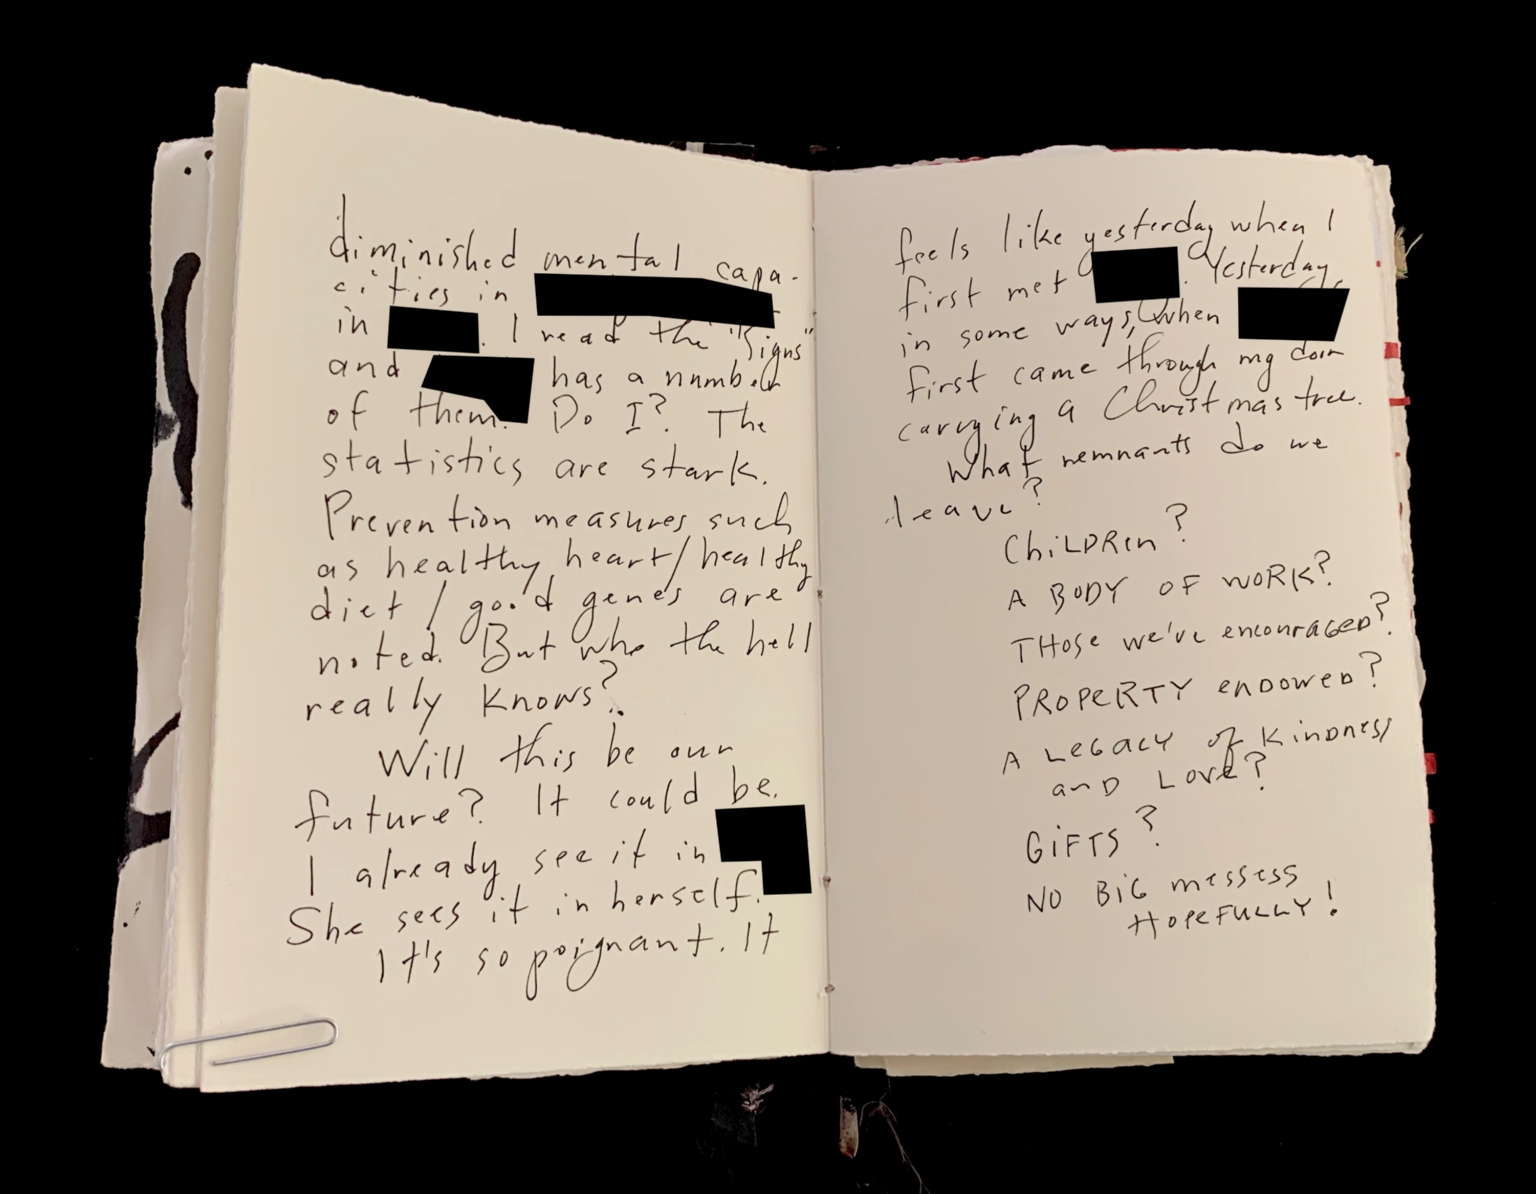 diminished mental capa-
cities in
in . I read the "Signs"
and has a number
of them. Do I? The
statistics are stark.
Prevention measures such
as healthy heart/healthy
diet/good genes are
noted. But who the hell
really knows?
Will this be our
future? It could be.
I already see it in
She sees it in herself.
It's so poignant. It
feels like yesterday when I
first met . Yesterday,
in some ways, when
first came through my door
carrying a Christmas tree.
What remnants do we
leave?
CHiLDREn?
A BODY OF WORK?
THOSe we've encouraGeD?
PROPeRTY enDoweD?
A LeGACY of KinDness
anD Love?
GiFTS?
NO BiG messess
HOPeFULLY!